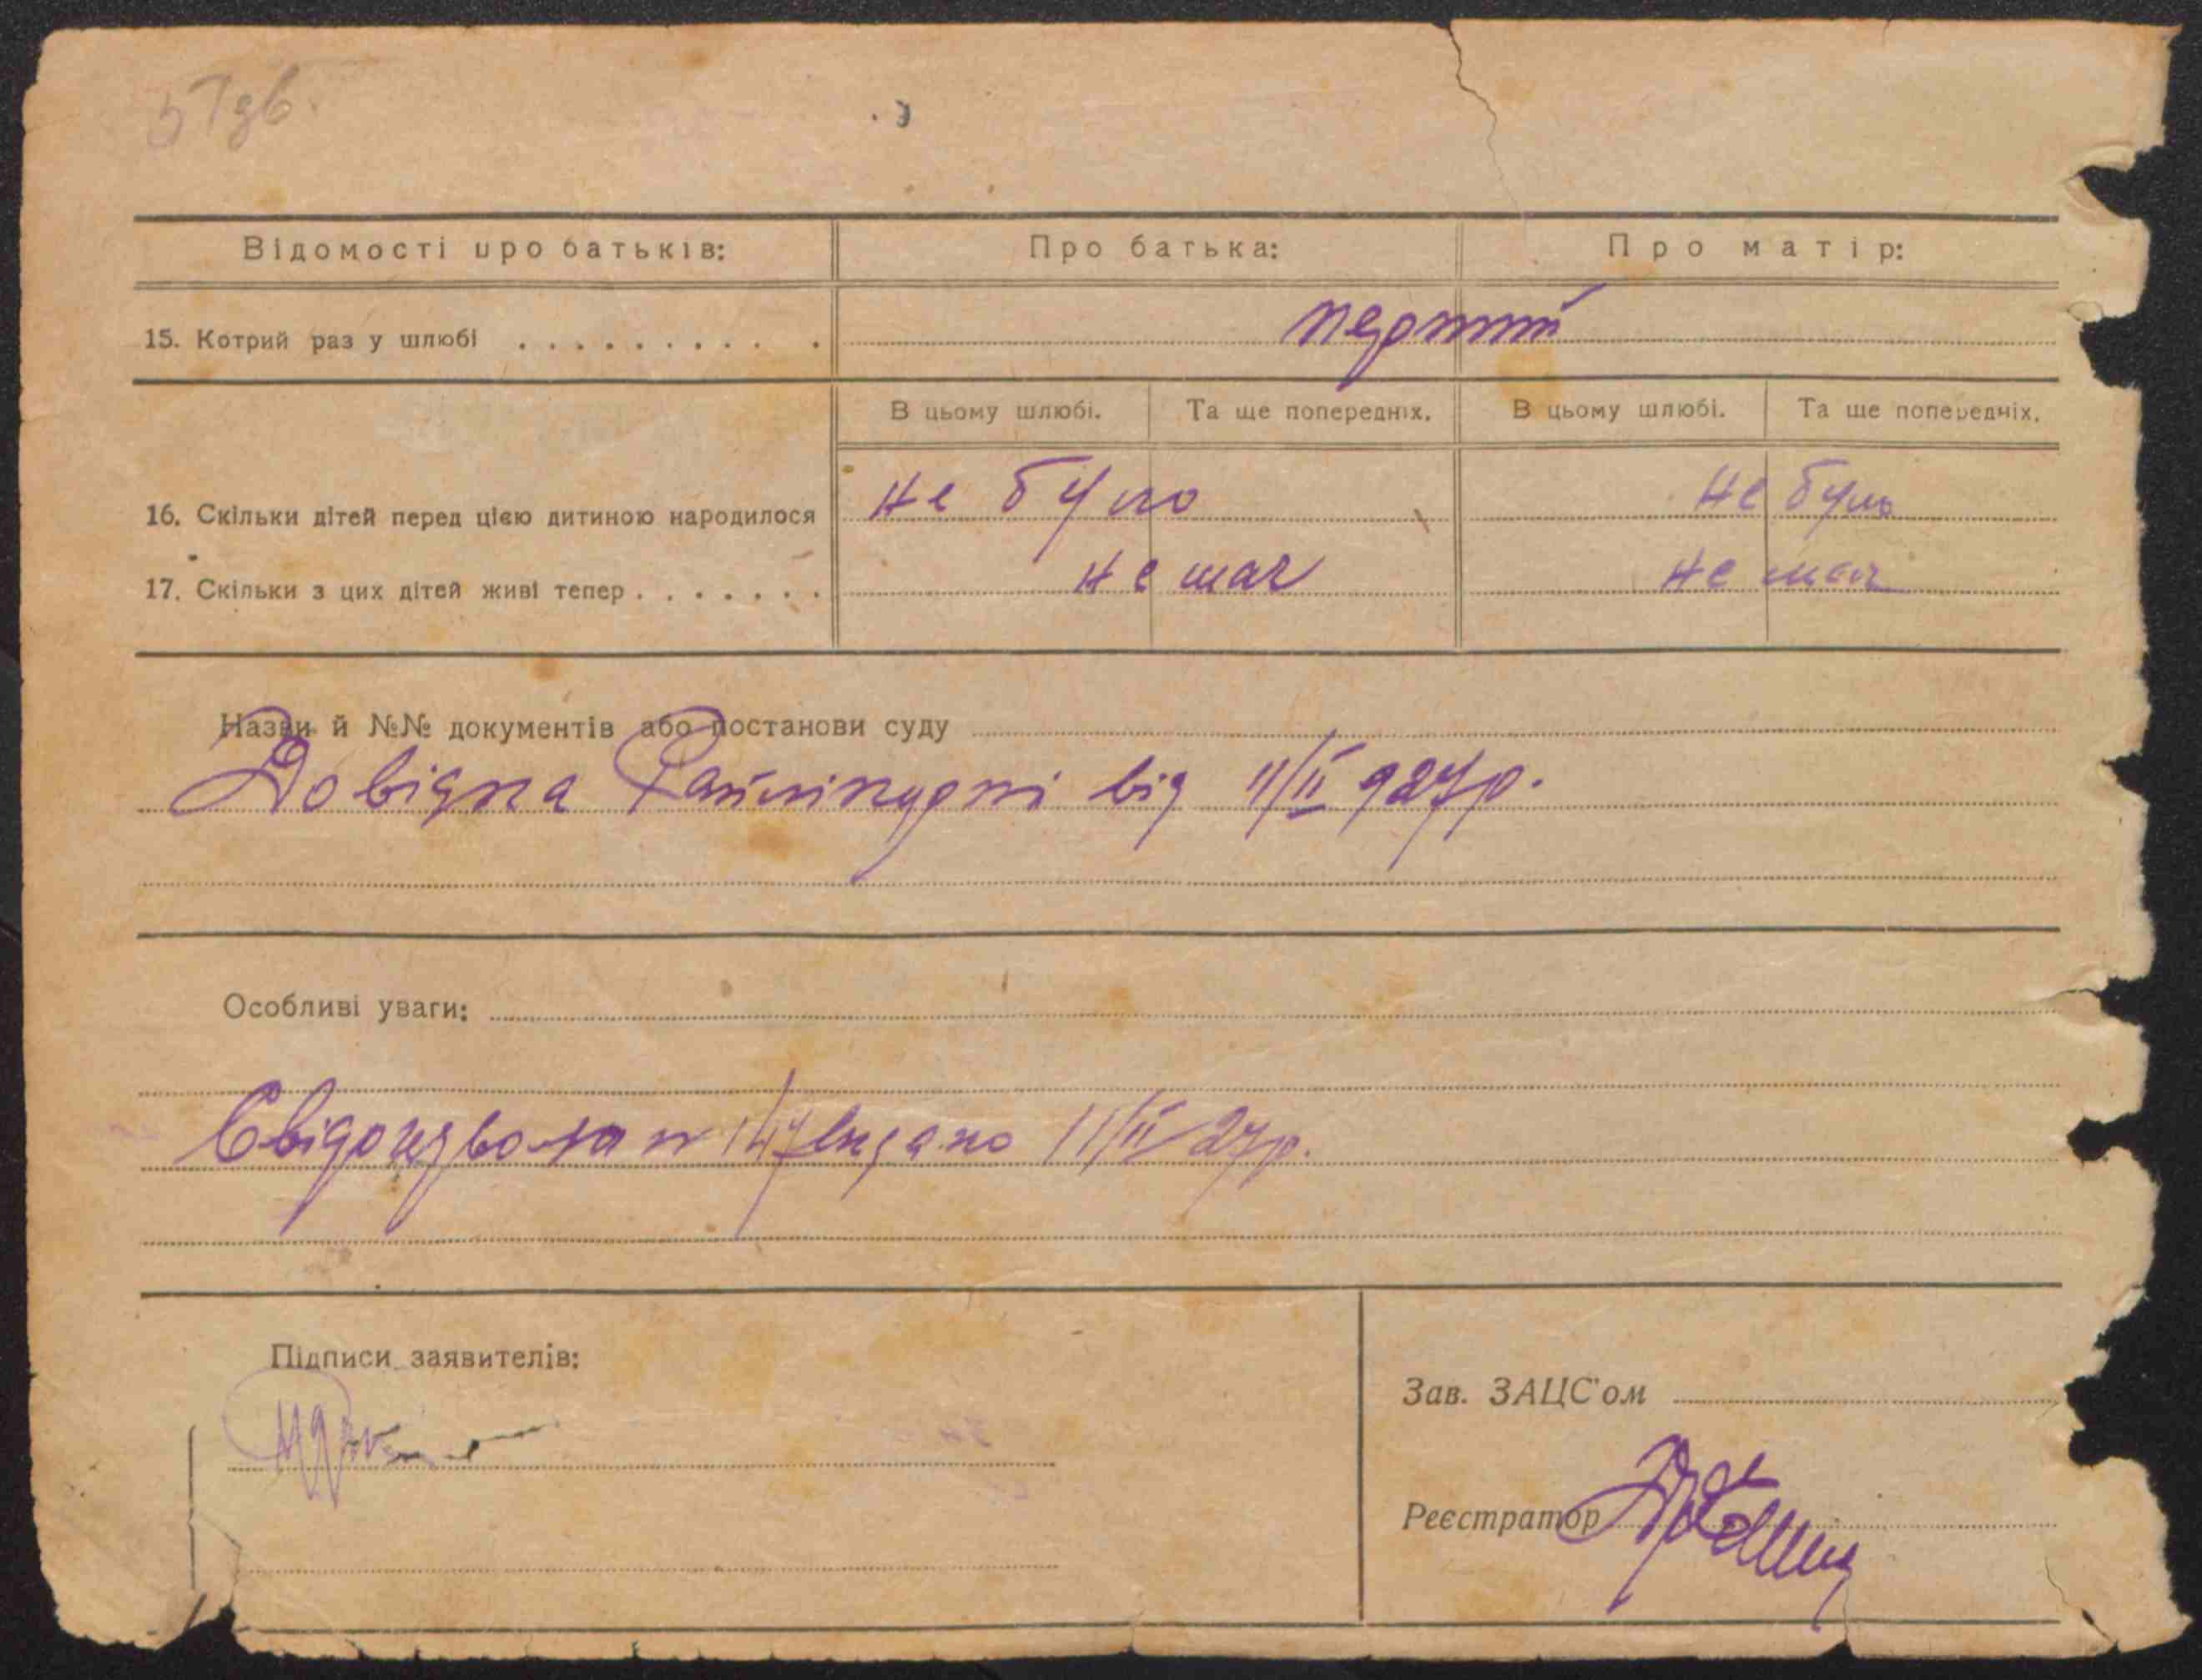 57 зв.
Відомості про батьків: Про батька: Про матір:
15. Котрий раз у шлюбі . . . . . . . . . . перший
В цьому шлюбі. Та ще попередніх. В цьому шлюбі. Та ще попередніх.
16. Скільки дітей перед цією дитиною народилося не було не було
17. Скільки з цих дітей живі тепер . . . . . . . немає немає
Назви й №№ документів або постанови суду
Довідка від 11/II 927р.
Особливі уваги:
Свідоцтво видано 11/II 27р.
Підписи заявителів:
Зав. ЗАЦС'ом
Реєстратор